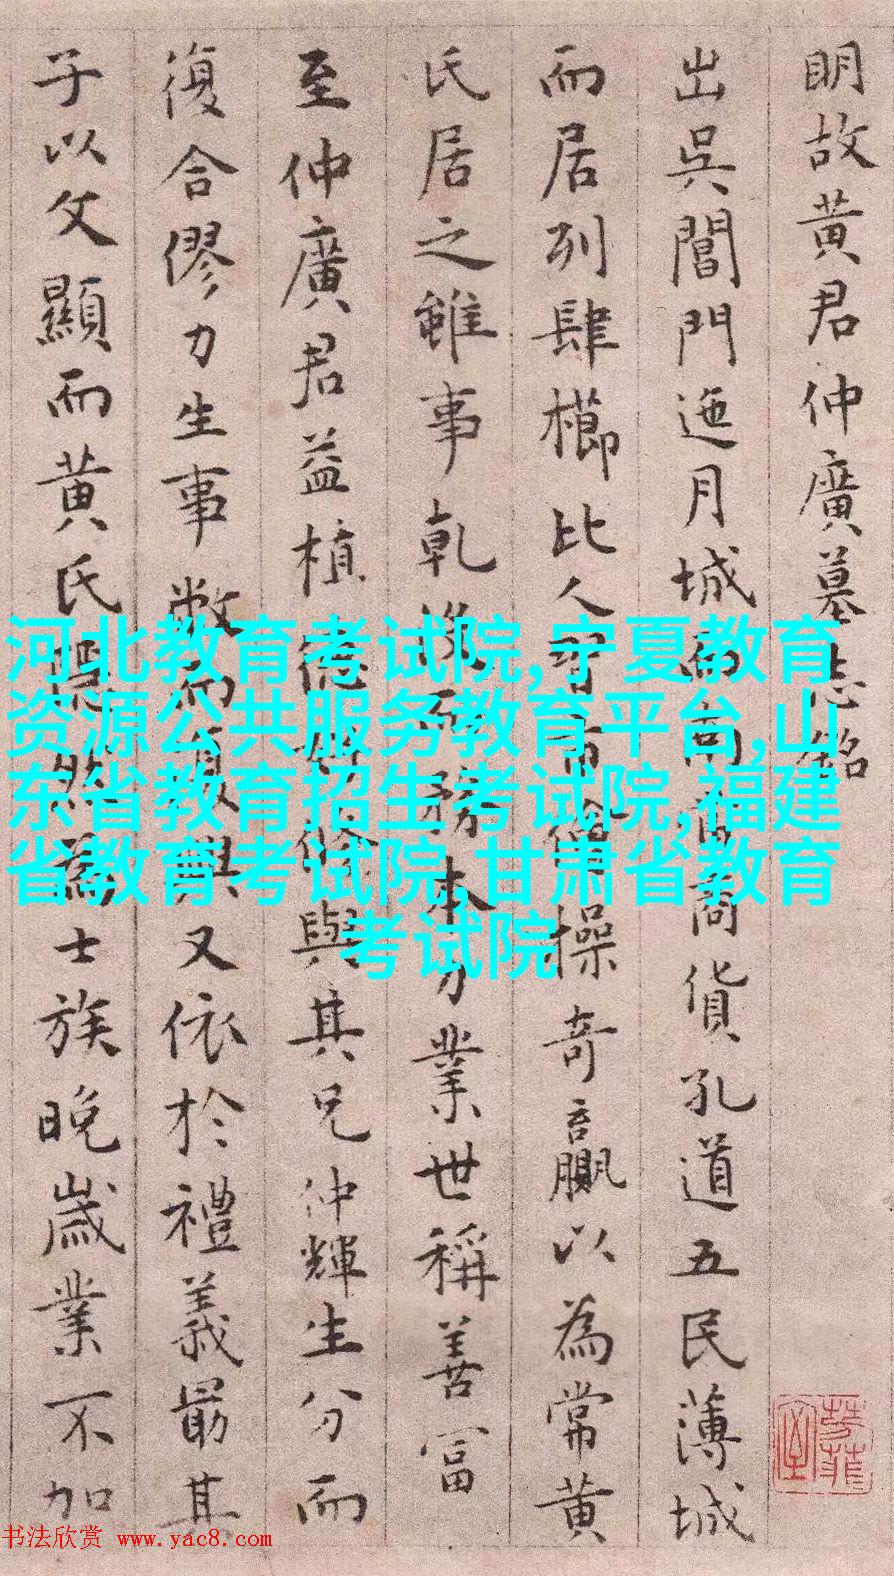 明故黄君仲廣墓志銘
出吳閶門迤月城而南為商貨孔道五民薄城
而居列肆櫛比人習市儈操奇贏以為常黄
氏居之雖事乾沒而務本力業世稱善富
至仲廣君益植德好修與其兄仲輝生分而
復合僇力生事復興又依於禮義最其
子以文顯而黄氏隱然為士族晚歲業不加
河北教育考试院,宁夏教育
资源公共服务教育平台,山
东省教育招生考试院,福建
省教育考试院,甘肃省教育
考试院
书法欣赏 www.yac8.com